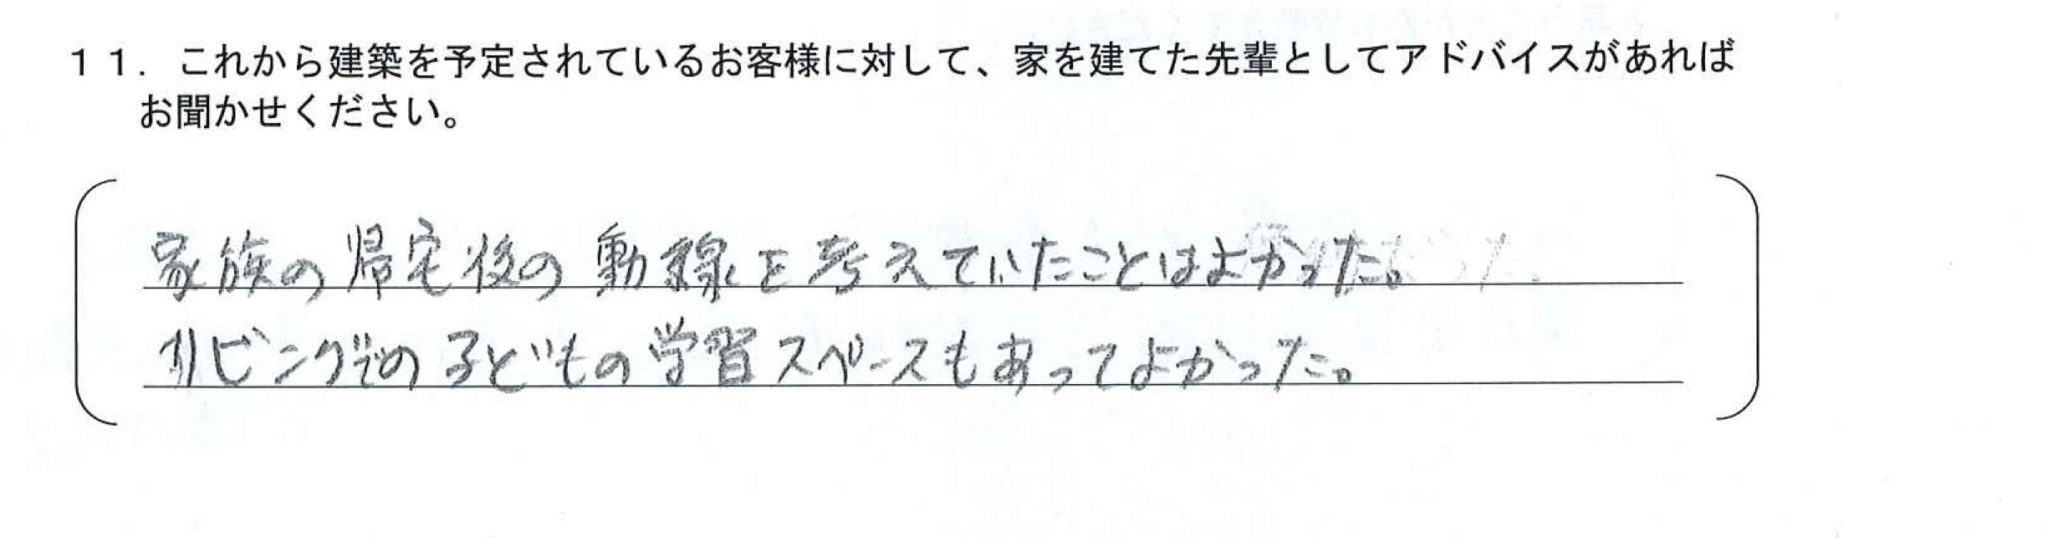 １１．これから建築を予定されているお客様に対して、家を建てた先輩としてアドバイスがあれば
お聞かせください。
家族の帰宅後の動線を考えていたことはよかった。
リビングでの子どもの学習スペースもあってよかった。